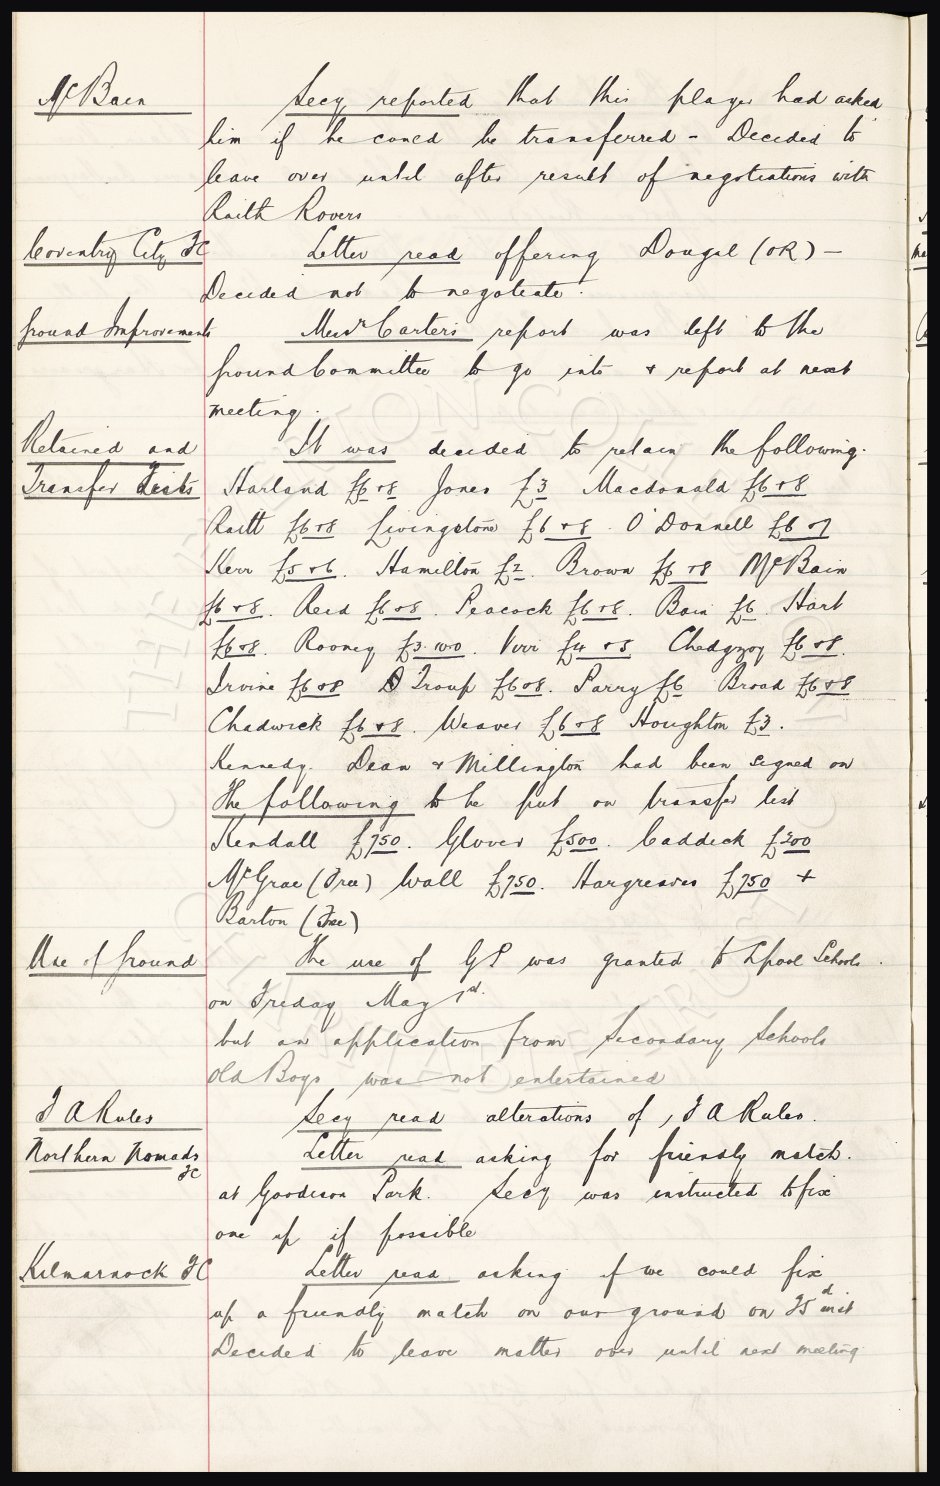 McBain
Secy reported that this player had asked
him if he could be transferred - Decided to
leave over until after result of negotiations with
Raith Rovers
Coventry City FC
Letter read offering Dougal (OR) -
Decided not to negotiate.
Ground Improvements
Messrs Carter's report was left to the
Ground Committee to go into & report at next
meeting.
Retained and
Transfer Lists
It was decided to retain the following.
Harland £6+8 Jones £3 Macdonald £6+8
Raitt £6+8 Livingstone £6+8. O'Donnell £6+7
Kerr £5+6. Hamilton £2. Brown £6+8 McBain
£6+8. Reid £6+8. Peacock £6+8. Bain £6. Hart
£6+8. Rooney £3.10.0. Virr £4+5 Chedgzoy £6+8.
Irvine £6+8 Troup £6+8. Parry £6 Broad £6+8
Chadwick £6+8. Weaver £6+8 Houghton £3.
Kennedy. Dean & Millington had been signed on
The following to be put on transfer list
Kendall £750. Glover £500. Caddick £300
McGrae (Free) Wall £750. Hargreaves £750 +
Barton (Free)
Use of Ground
The use of GP was granted to Lpool Schools.
on Friday May 1st.
but an application from Secondary Schools
Old Boys was not entertained
F A Rules
Secy read alterations of F A Rules.
Northern Nomads
FC
Letter read asking for friendly match.
at Goodison Park. Secy was instructed to fix
one up if possible
Kilmarnock FC
Letter read asking if we could fix
up a friendly match on our ground on 25 inst
Decided to leave matter over until next meeting